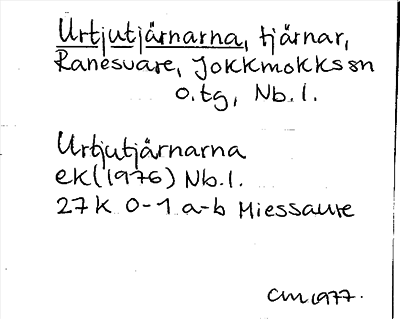 Urtjutjärnarna, tjärnar,
Ranesvare, Jokkmokks sn
o. tg, Nb. l.
Urtjutjärnarna
ek (1976) Nb. l.
27 K 0-1 a-b Miessaure
CM 1977.